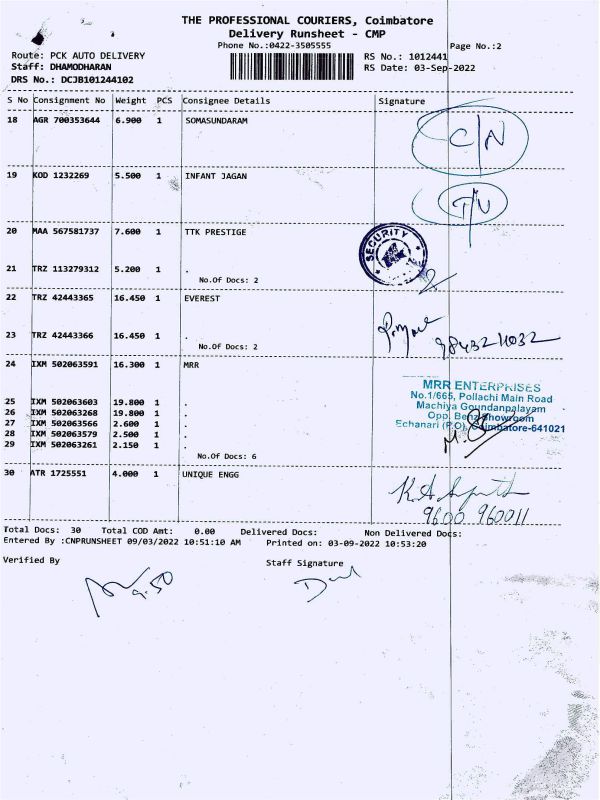 THE PROFESSIONAL COURIERS, Coimbatore
Delivery Runsheet - CMP
Phone No.:0422-3505555
Page No.:2
Route: PCK AUTO DELIVERY
RS No.: 1012441
Staff: DHAMODHARAN
RS Date: 03-Sep-2022
DRS No.: DCJB101244102
S No Consignment No Weight PCS Consignee Details Signature
18 AGR 700353644 6.900 1 SOMASUNDARAM
C/N
19 KOD 1232269 5.500 1 INFANT JAGAN
20 MAA 567581737 7.600 1 TTK PRESTIGE
SECURITY
21 TRZ 113279312 5.200 1 .
No.Of Docs: 2
22 TRZ 42443365 16.450 1 EVEREST
23 TRZ 42443366 16.450 1 .
No.Of Docs: 2
24 IXM 502063591 16.300 1 MRR
MRR ENTERPRISES
No.1/665, Pollachi Main Road
Machiya Goundanpalayam
Opp. Benz Showroom
Echanari (P.O), Coimbatore-641021
25 IXM 502063603 19.800 1 .
26 IXM 502063268 19.800 1 .
27 IXM 502063566 2.600 1 .
28 IXM 502063579 2.500 1 .
29 IXM 502063261 2.150 1 .
No.Of Docs: 6
30 ATR 1725551 4.000 1 UNIQUE ENGG
9600 960011
Total Docs: 30 Total COD Amt: 0.00 Delivered Docs: Non Delivered Docs:
Entered By :CNPRUNSHEET 09/03/2022 10:51:10 AM Printed on: 03-09-2022 10:53:20
Verified By
Staff Signature
9.50